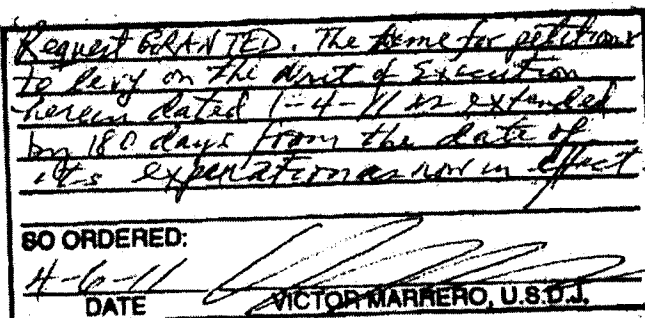 Request GRANTED. The time for petitioner
to levy on the Writ of Execution
herein dated 1-4-11 is extended
by 180 days from the date of
its expiration as now in effect.
SO ORDERED:
4-6-11
DATE VICTOR MARRERO, U.S.D.J.